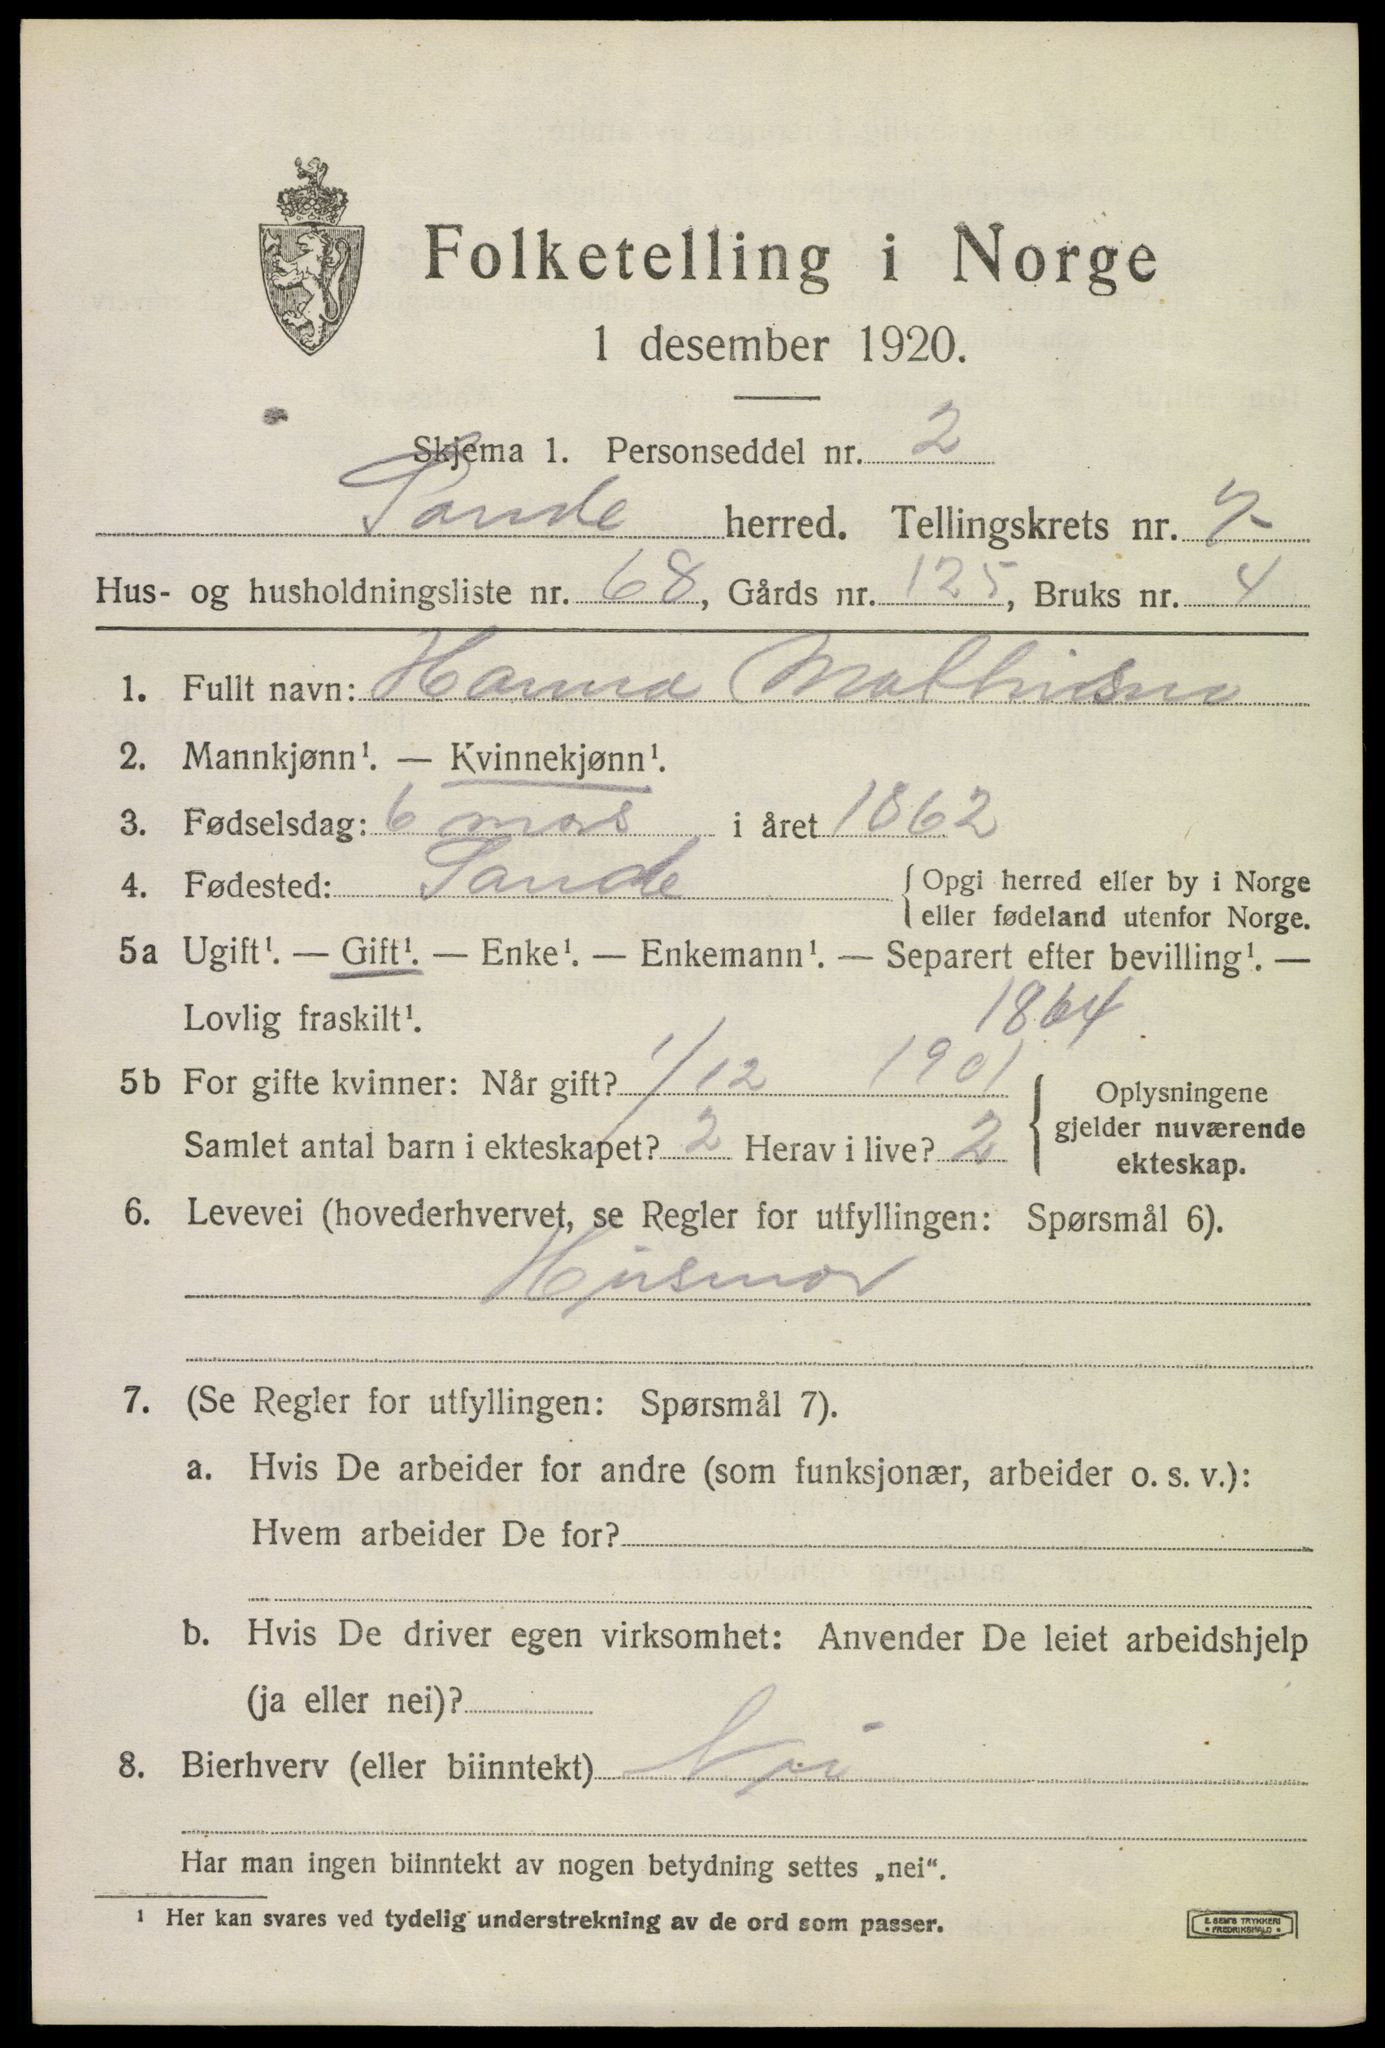 Folketelling i Norge
1 desember 1920.
Skjema 1. Personseddel nr. 2
Sande herred. Tellingskrets nr. 7-
Hus- og husholdningsliste nr. 68, Gårds nr. 125, Bruks nr. 4
1. Fullt navn: Hanna
2. Mannkjønn¹. — Kvinnekjønn¹.
3. Fødselsdag: 6 mars i året 1862
4. Fødested: Sande { Opgi herred eller by i Norge
eller fødeland utenfor Norge.
5a Ugift¹. — Gift¹. — Enke¹. — Enkemann¹. — Separert efter bevilling¹. —
Lovlig fraskilt¹. 1864
5b For gifte kvinner: Når gift? 1/12 1901
Samlet antal barn i ekteskapet? 2 Herav i live? 2
{ Oplysningene
gjelder nuværende
ekteskap.
6. Levevei (hovederhvervet, se Regler for utfyllingen: Spørsmål 6).
Husmor
7. (Se Regler for utfyllingen: Spørsmål 7).
a. Hvis De arbeider for andre (som funksjonær, arbeider o. s. v.):
Hvem arbeider De for?
b. Hvis De driver egen virksomhet: Anvender De leiet arbeidshjelp
(ja eller nei)?
8. Bierhverv (eller biinntekt) Nei
Har man ingen biinntekt av nogen betydning settes „nei“.
¹ Her kan svares ved tydelig understrekning av de ord som passer.
E. SEM'S TRYKKERI
• FREDRIKSHALD •